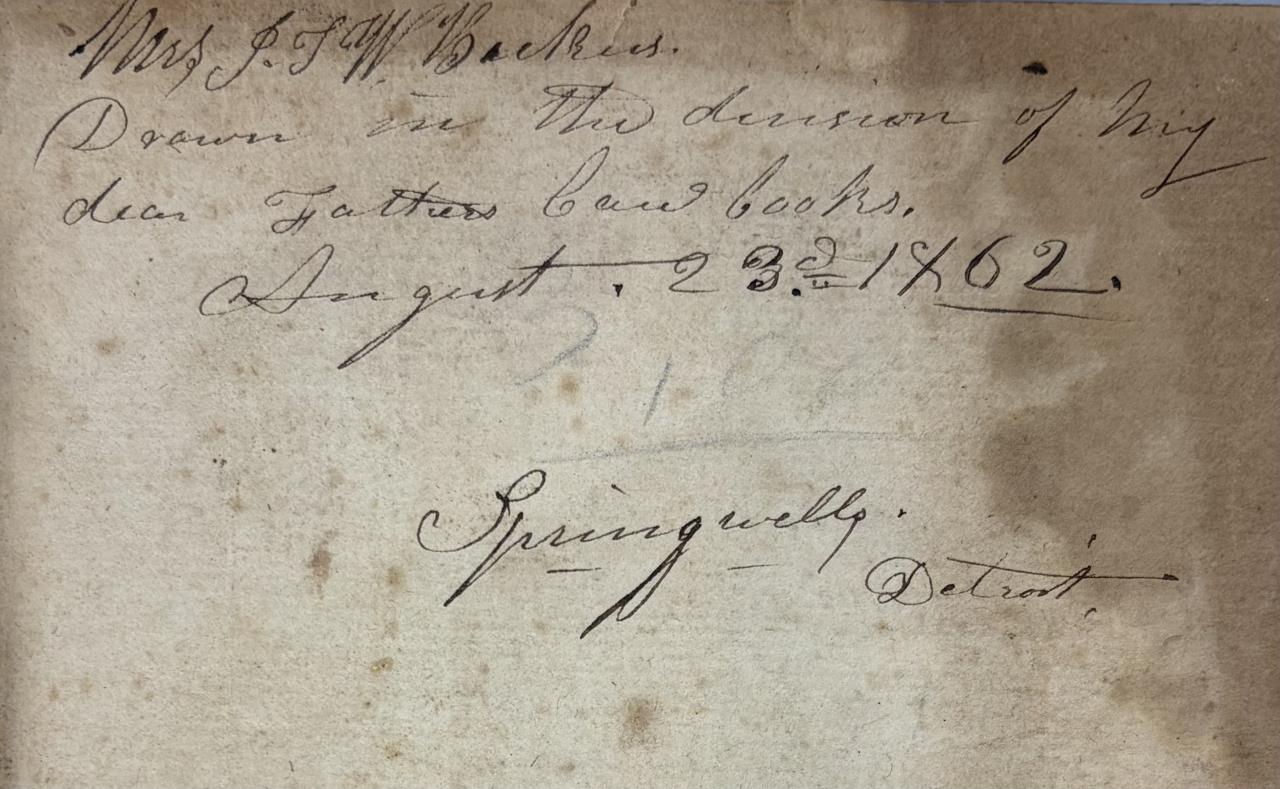 Mrs J. F. W. Backus.
Drawn in the division of my
dear Fathers Law books.
August. 23.d 1862.
Springwells.
Detroit.